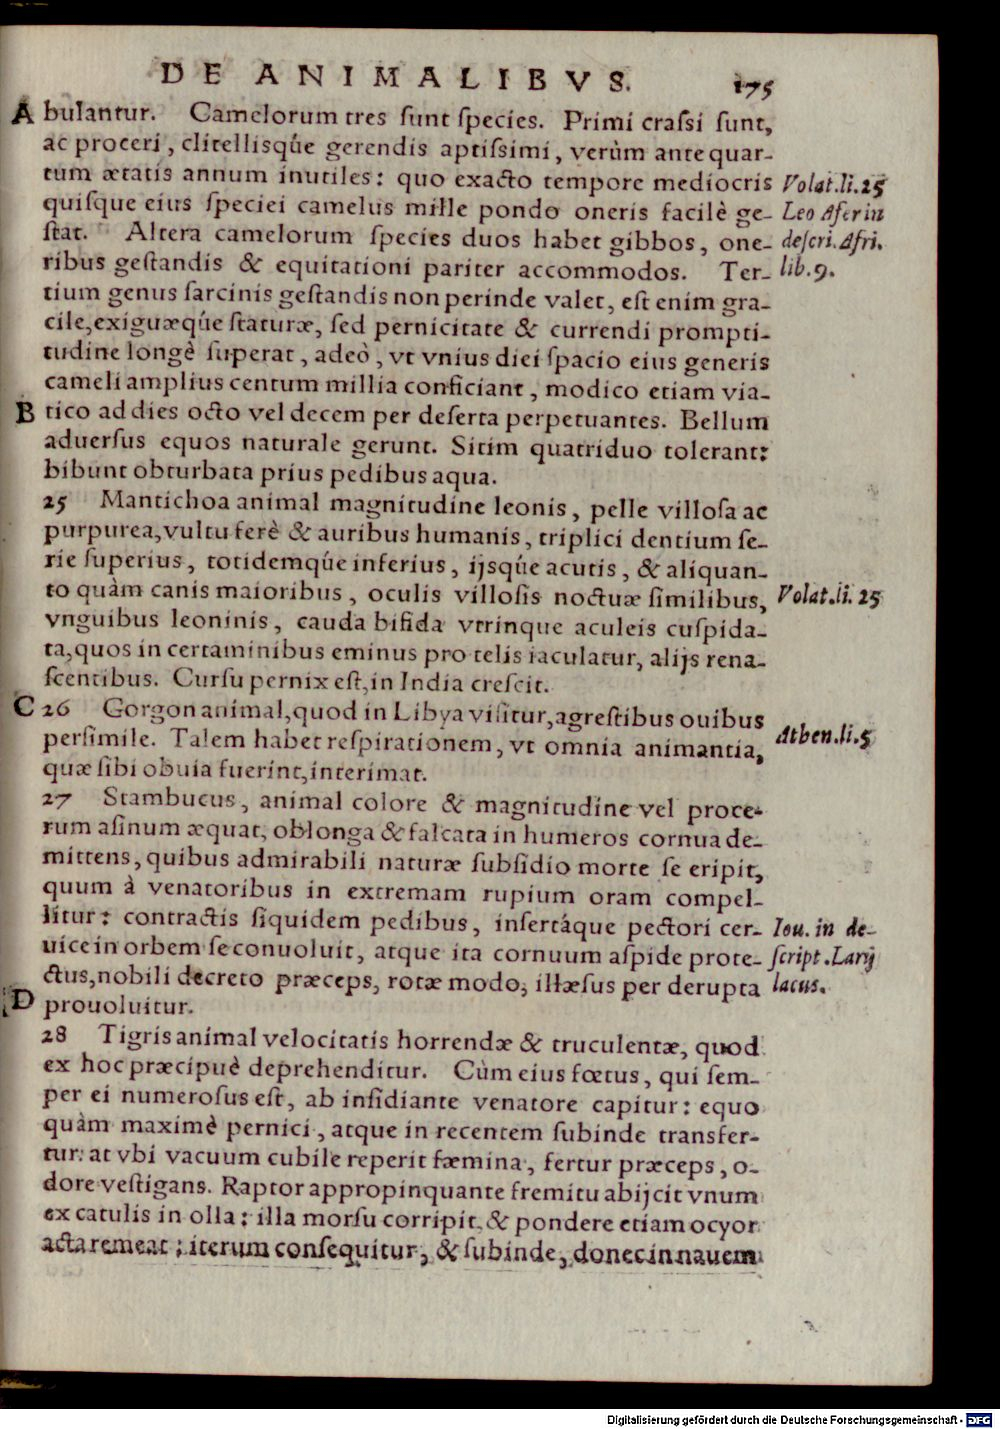 DE ANIMALIBVS. 175
A bulantur. Camelorum tres ſunt ſpecies. Primi craſsi ſunt,
ac proceri, clitellisq́ue gerendis aptiſsimi, verùm ante quar-
tum ætatis annum inutiles: quo exacto tempore mediocris Volat.li.25
quiſque eius ſpeciei camelus mille pondo oneris facilè ge- Leo Afer in
ſtat. Altera camelorum ſpecies duos habet gibbos, one- deſcri.Afri.
ribus geſtandis & equitationi pariter accommodos. Ter- lib.9.
tium genus ſarcinis geſtandis non perinde valet, eſt enim gra-
cile, exiguæq́ue ſtaturæ, ſed pernicitate & currendi prompti-
tudine longè ſuperat, adeò, vt vnius diei ſpacio eius generis
cameli amplius centum millia conficiant, modico etiam via-
B tico ad dies octo vel decem per deſerta perpetuantes. Bellum
aduerſus equos naturale gerunt. Sitim quatriduo tolerant:
bibunt obturbata prius pedibus aqua.
25 Mantichoa animal magnitudine leonis, pelle villoſa ac
purpurea, vultu ferè & auribus humanis, triplici dentium ſe-
rie ſuperius, totidemq́ue inferius, ijsq́ue acutis, & aliquan-
to quàm canis maioribus, oculis villoſis noctuæ ſimilibus, Volat.li.25
vnguibus leoninis, cauda bifida vtrinque aculeis cuſpida-
ta, quos in certaminibus eminus pro telis iaculatur, alijs rena-
ſcentibus. Curſu pernix eſt, in India creſcit.
C 26 Gorgon animal, quod in Libya viſitur, agreſtibus ouibus
perſimile. Talem habet reſpirationem, vt omnia animantia, Athen.li.5
quæ ſibi obuia fuerint, interimat.
27 Stambucus, animal colore & magnitudine vel proce-
rum aſinum æquat, oblonga & falcata in humeros cornua de-
mittens, quibus admirabili naturæ ſubſidio morte ſe eripit,
quum à venatoribus in extremam rupium oram compel-
litur: contractis ſiquidem pedibus, inſertáque pectori cer- Iou. in de-
uice in orbem ſe conuoluit, atque ita cornuum aſpide prote- ſcript.Larij
ctus, nobili decreto præceps, rotæ modo, illæſus per derupta lacus.
D prouoluitur.
28 Tigris animal velocitatis horrendæ & truculentæ, quod
ex hoc præcipuè deprehenditur. Cùm eius fœtus, qui ſem-
per ei numeroſus eſt, ab inſidiante venatore capitur: equo
quàm maximè pernici, atque in recentem ſubinde transfer-
tur: at vbi vacuum cubile reperit fæmina, fertur præceps, o-
dore veſtigans. Raptor appropinquante fremitu abijcit vnum
ex catulis in olla: illa morſu corripit, & pondere etiam ocyor
acta remeat: iterum conſequitur, & ſubinde, donec in nauem
Digitalisierung gefördert durch die Deutsche Forschungsgemeinschaft - DFG